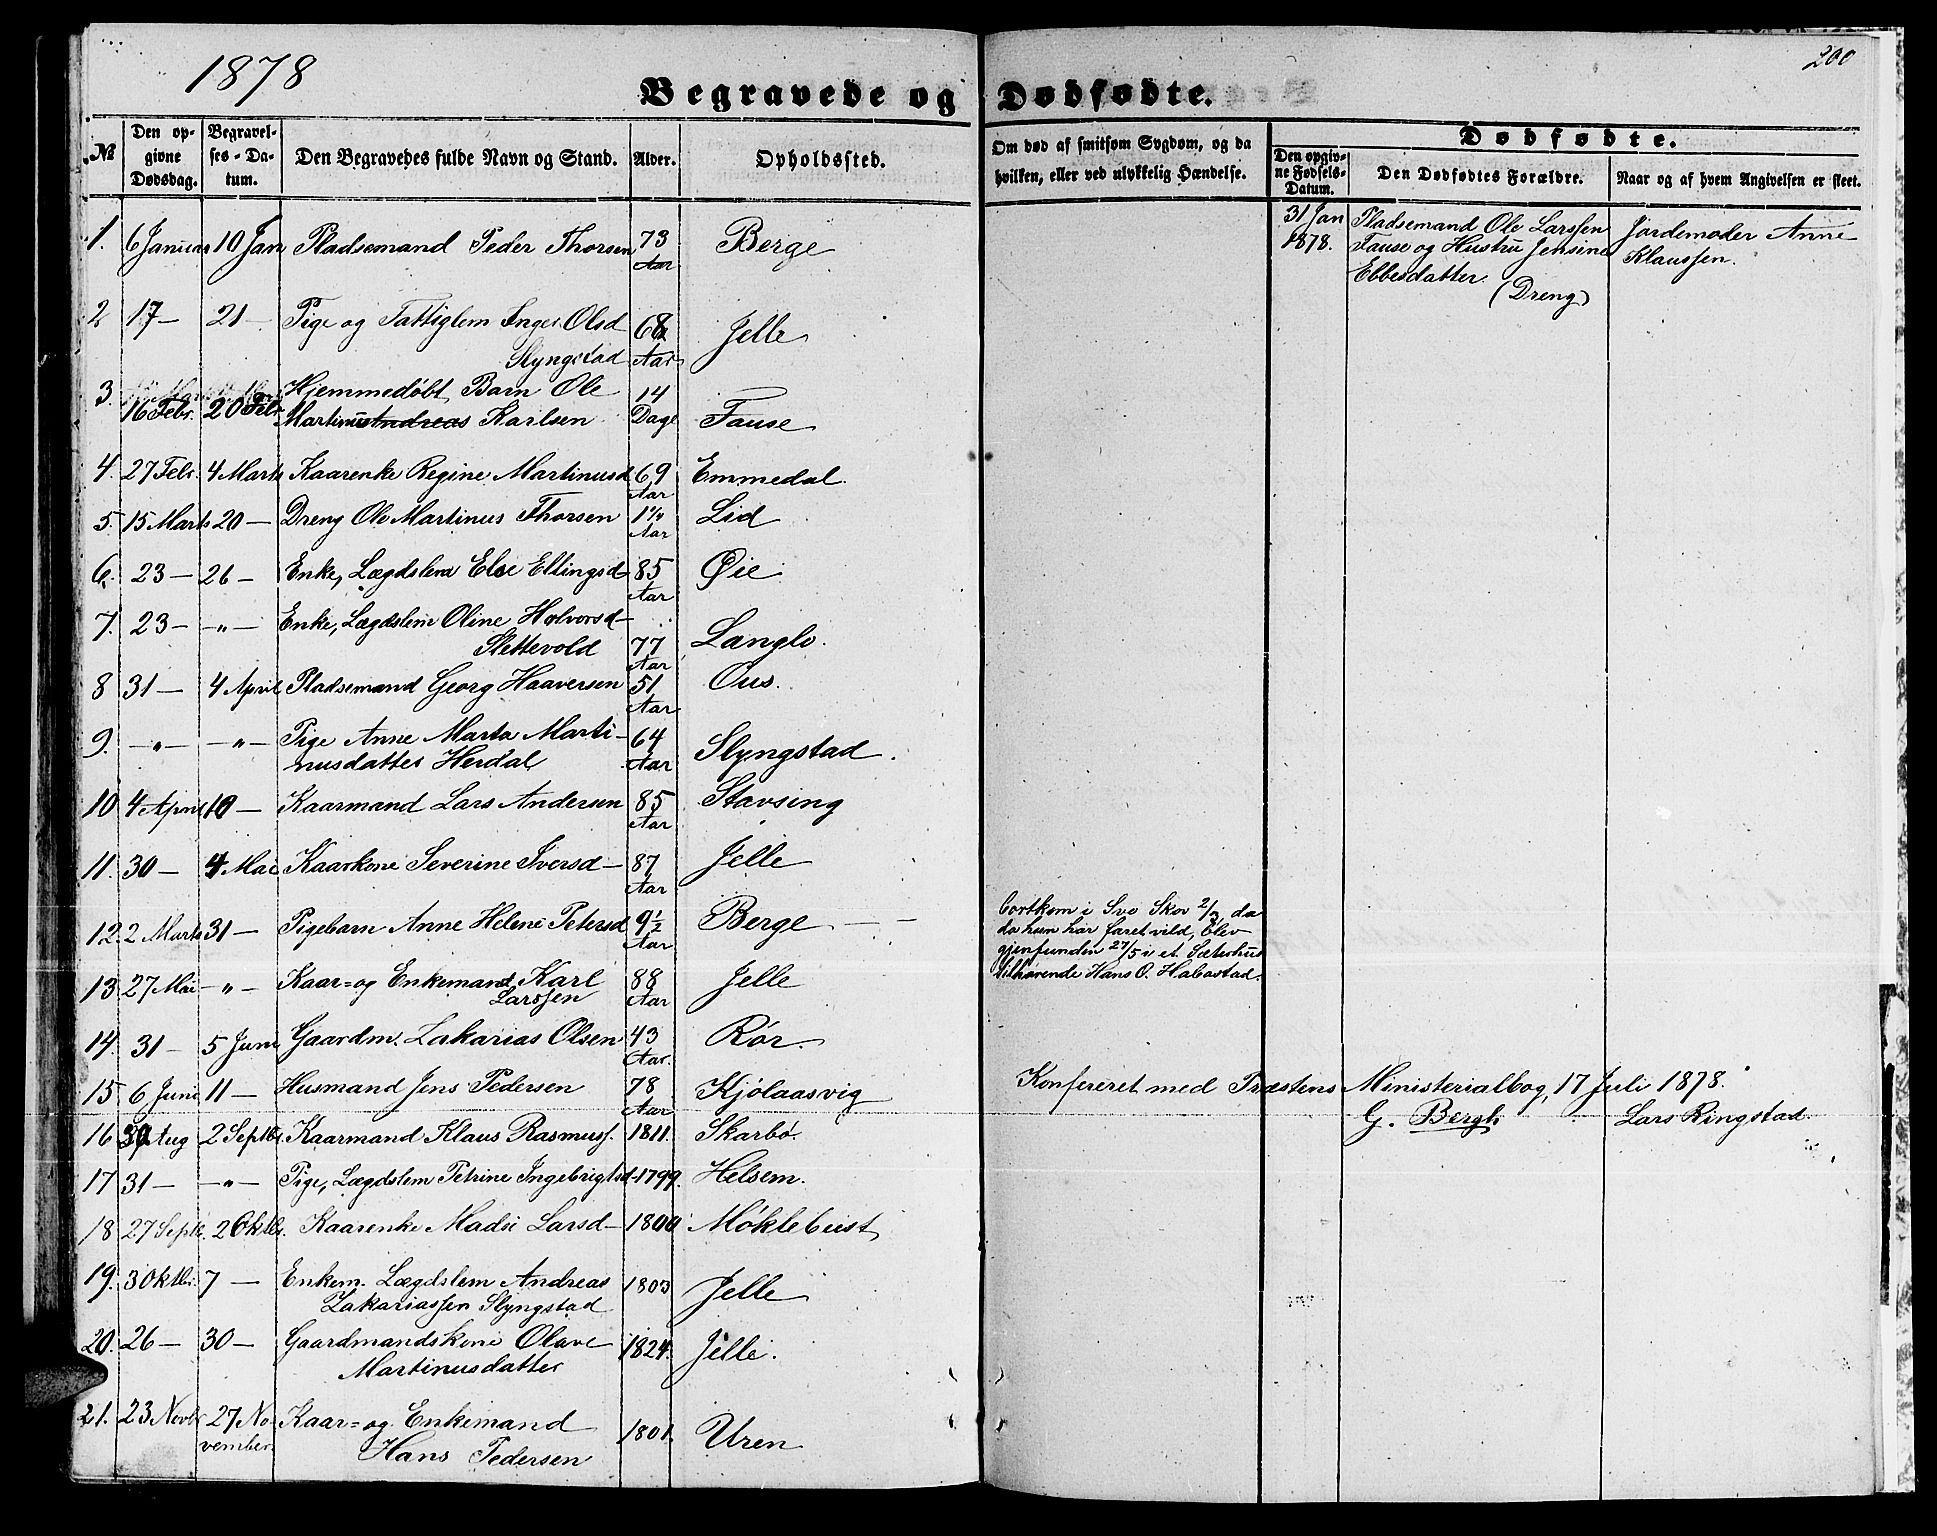 1878
200
Begravede og Dødfødte.
№
Den op-
givne
Dødsdag.
Begravel-
ses-Da-
tum.
Den Begravedes fulde Navn og Stand.
Alder.
Opholdssted.
Om død af smitsom Sygdom, og da
hvilken, eller ved ulykkelig Hændelse.
Dødfødte.
Den opgiv-
ne Fødsels-
Datum.
Den Dødfødtes Forældre.
Naar og af hvem Angivelsen er skeet.
1. 6 Januar 10 Jan Pladsemand Peder Thorsen 73 Aar Berge
2 17 — 21 — Pige og Fattiglem Inger Olsd
Slyngstad 68 Aar Jelle
3. 16 Febr. 20 Febr. Hjemmedøbt Barn Ole
Martinus Andreas Karlsen 14 Dage Fause
4. 27 Febr. 4 Marts Kaarenke Regine Martinusd 69 Aar Emmedal.
5. 15 Marts 20 — Dreng Ole Martinus Thorsen 1 1/4 Aar Lid
6. 23 — 26 — Enke, Lægdslem Else Ellingsd— 85 Aar Øie
7. 23 — — " — Enke, Lægdslem Oline Halvorsd—
Slettevold 77 Aar Langlo.
8 31 — 4 April Pladsemand Georg Haaversen 51 Aar Ous.
9. — " — — " — Pige Anne Marta Marti-
nusdatter Herdal 64 Aar Slyngstad.
10. 4 April 10 — Kaarmand Lars Andersen 85 Aar Stavsing
11. 30 — 4 Mai Kaarkone Severine Iversd— 87 Aar Jelle
12. 2 Marts 31 — Pigebarn Anne Helene Petersd 9 1/2 Aar Berge
13 27 Mai — " — Kaar= og Enkemand Karl
Larssen 88 Aar Jelle
14. 31 — 5 Juni Gaardm. Zakarias Olsen 43 Aar. Rør.
15 6 Juni 11 — Husmand Jens Pedersen 78 Aar Kjølaasvig
16 30 Aug 2 Septbr. Kaarmand Klaus Rasmuss. 1811. Skarbø.
17 31 — — " — Pige, Lægdslem Petrine Ingebrigtsd— 1799. Helsem.
18 27 Septbr. 2 Oktbr. Kaarenke Madsi Larsd— 1800 Møklebust
19. 3 Oktbr. 7 — Enkem. Lægdslem Andreas
Zakariassen Slyngstad 1803 Jelle
20. 26 — 30 — Gaardmandskone Olave
Martinusdatter 1824. Jelle.
21. 23 Novbr 27 No-
vember. Kaar= og Enkemand
Hans Pedersen 1801. Uren
31 Jan
1878.
Pladsemand Ole Larssen
Fause og Hustru Jensine
Ebbesdatter.
(Dreng)
Jordemoder Anne
Klaussen.
bortkom i Svo Skov 2/3, da
da hun har faret vild, blev
gjenfunden 27/5 i et Sæterhus
tilhørende Hans O. Habostad.
Konfereret med Præstens Ministerialbog, 17 Juli 1878.
G. Bergh
Lars Ringstad.